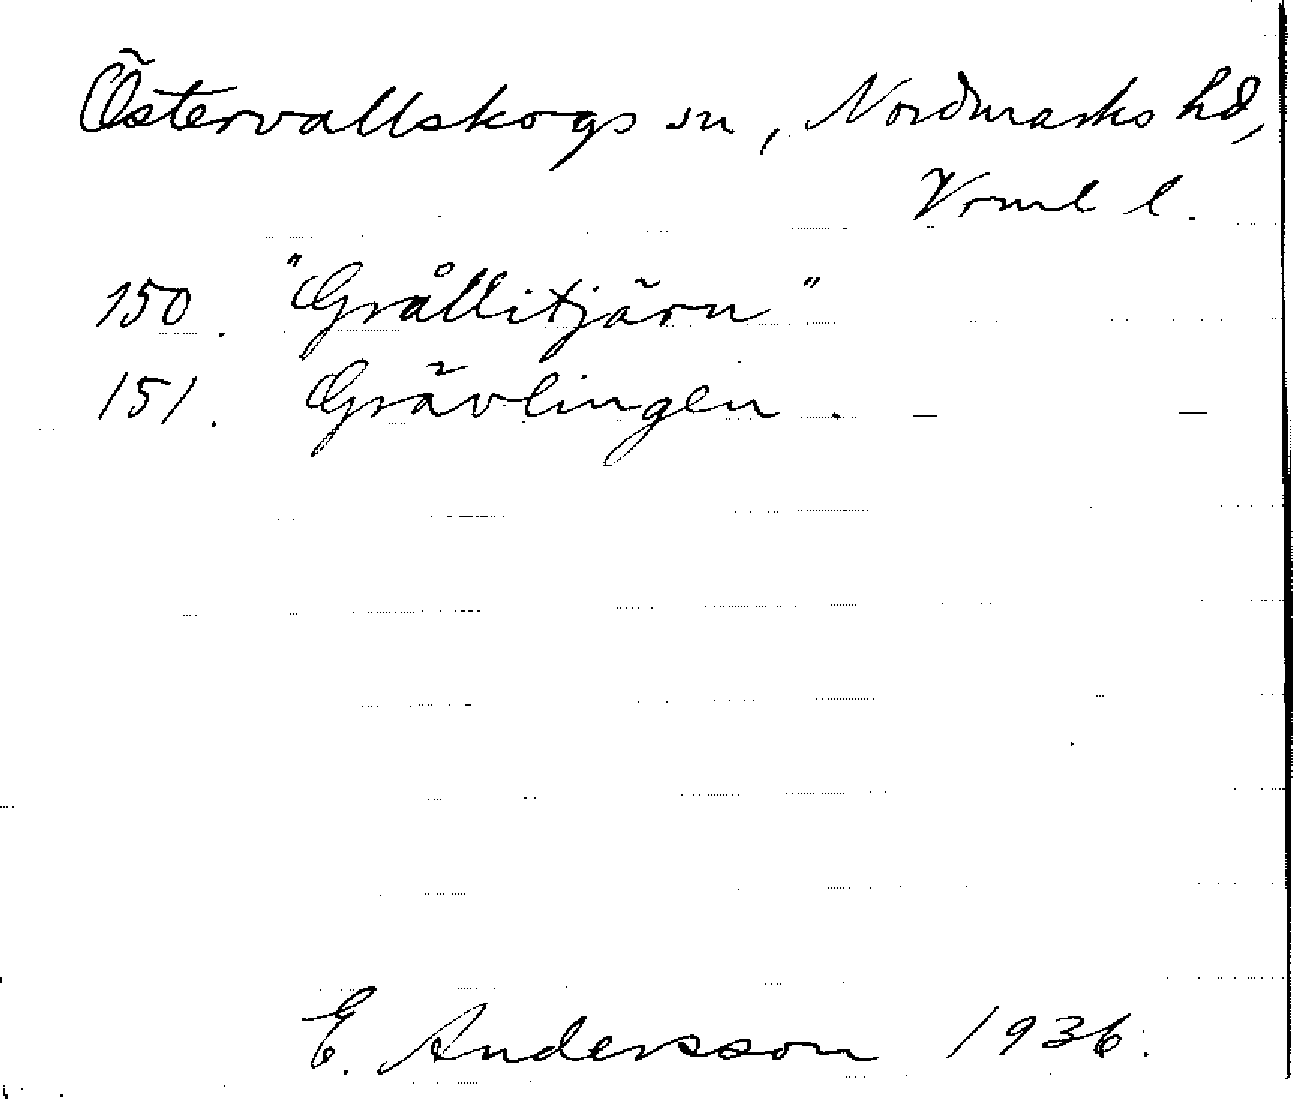 Östervallskogs sn, Nordmarks hd,
Vrml l.
150. "Grållitjärn"
151. Grävlingen. — —
E. Andersson 1936.